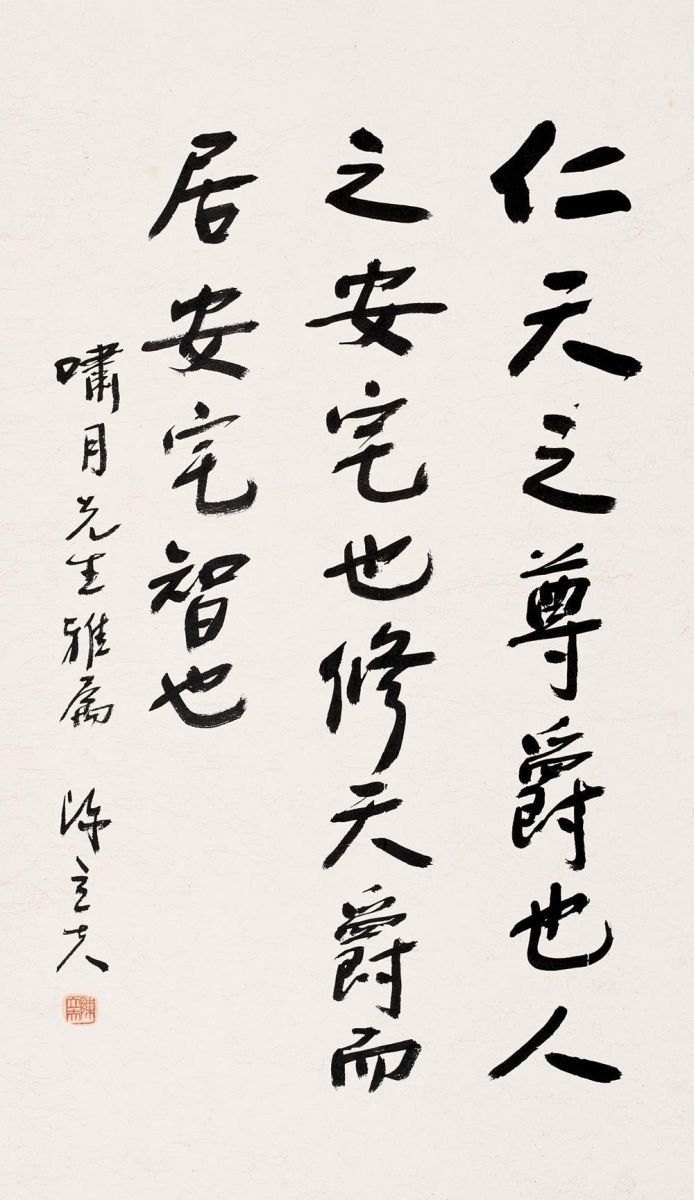 仁天之尊爵也人
之安宅也修天爵而
居安宅智也
嘯月先生雅属
陳立夫